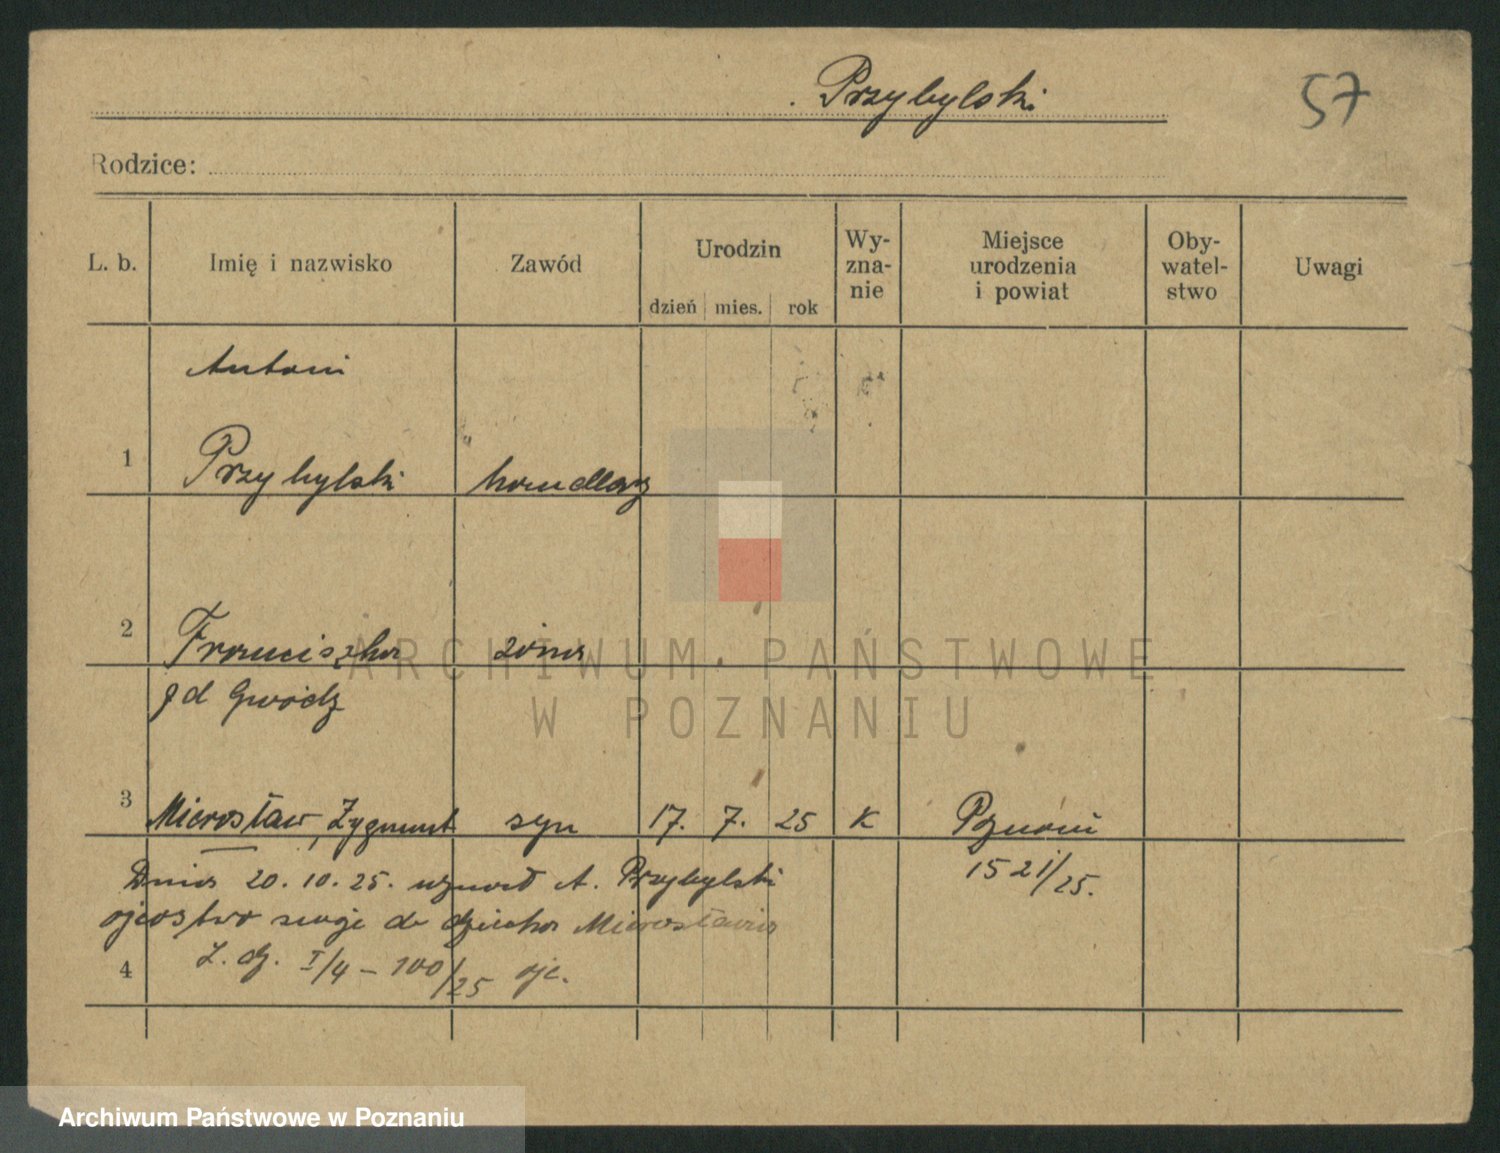 Przybylski
57
Rodzice:
L. b.
Imię i nazwisko
Zawód
Urodzin
dzień
mies.
rok
Wy-
zna-
nie
Miejsce
urodzenia
i powiat
Oby-
watel-
stwo
Uwagi
Antoni
1
Przybylski
handlarz
2
Franciszka
żona
Gwoźdź
3
Mirosław, Zygmunt
syn
17.
7.
25
K
Poznań
1521/25.
Dnia 20.10.25. uznał A. Przybylski
ojcostwo swoje do dziecka Mirosława
4
L. dz. I/4 - 100/25 ojc.
ARCHIWUM PAŃSTWOWE
W POZNANIU
Archiwum Państwowe w Poznaniu